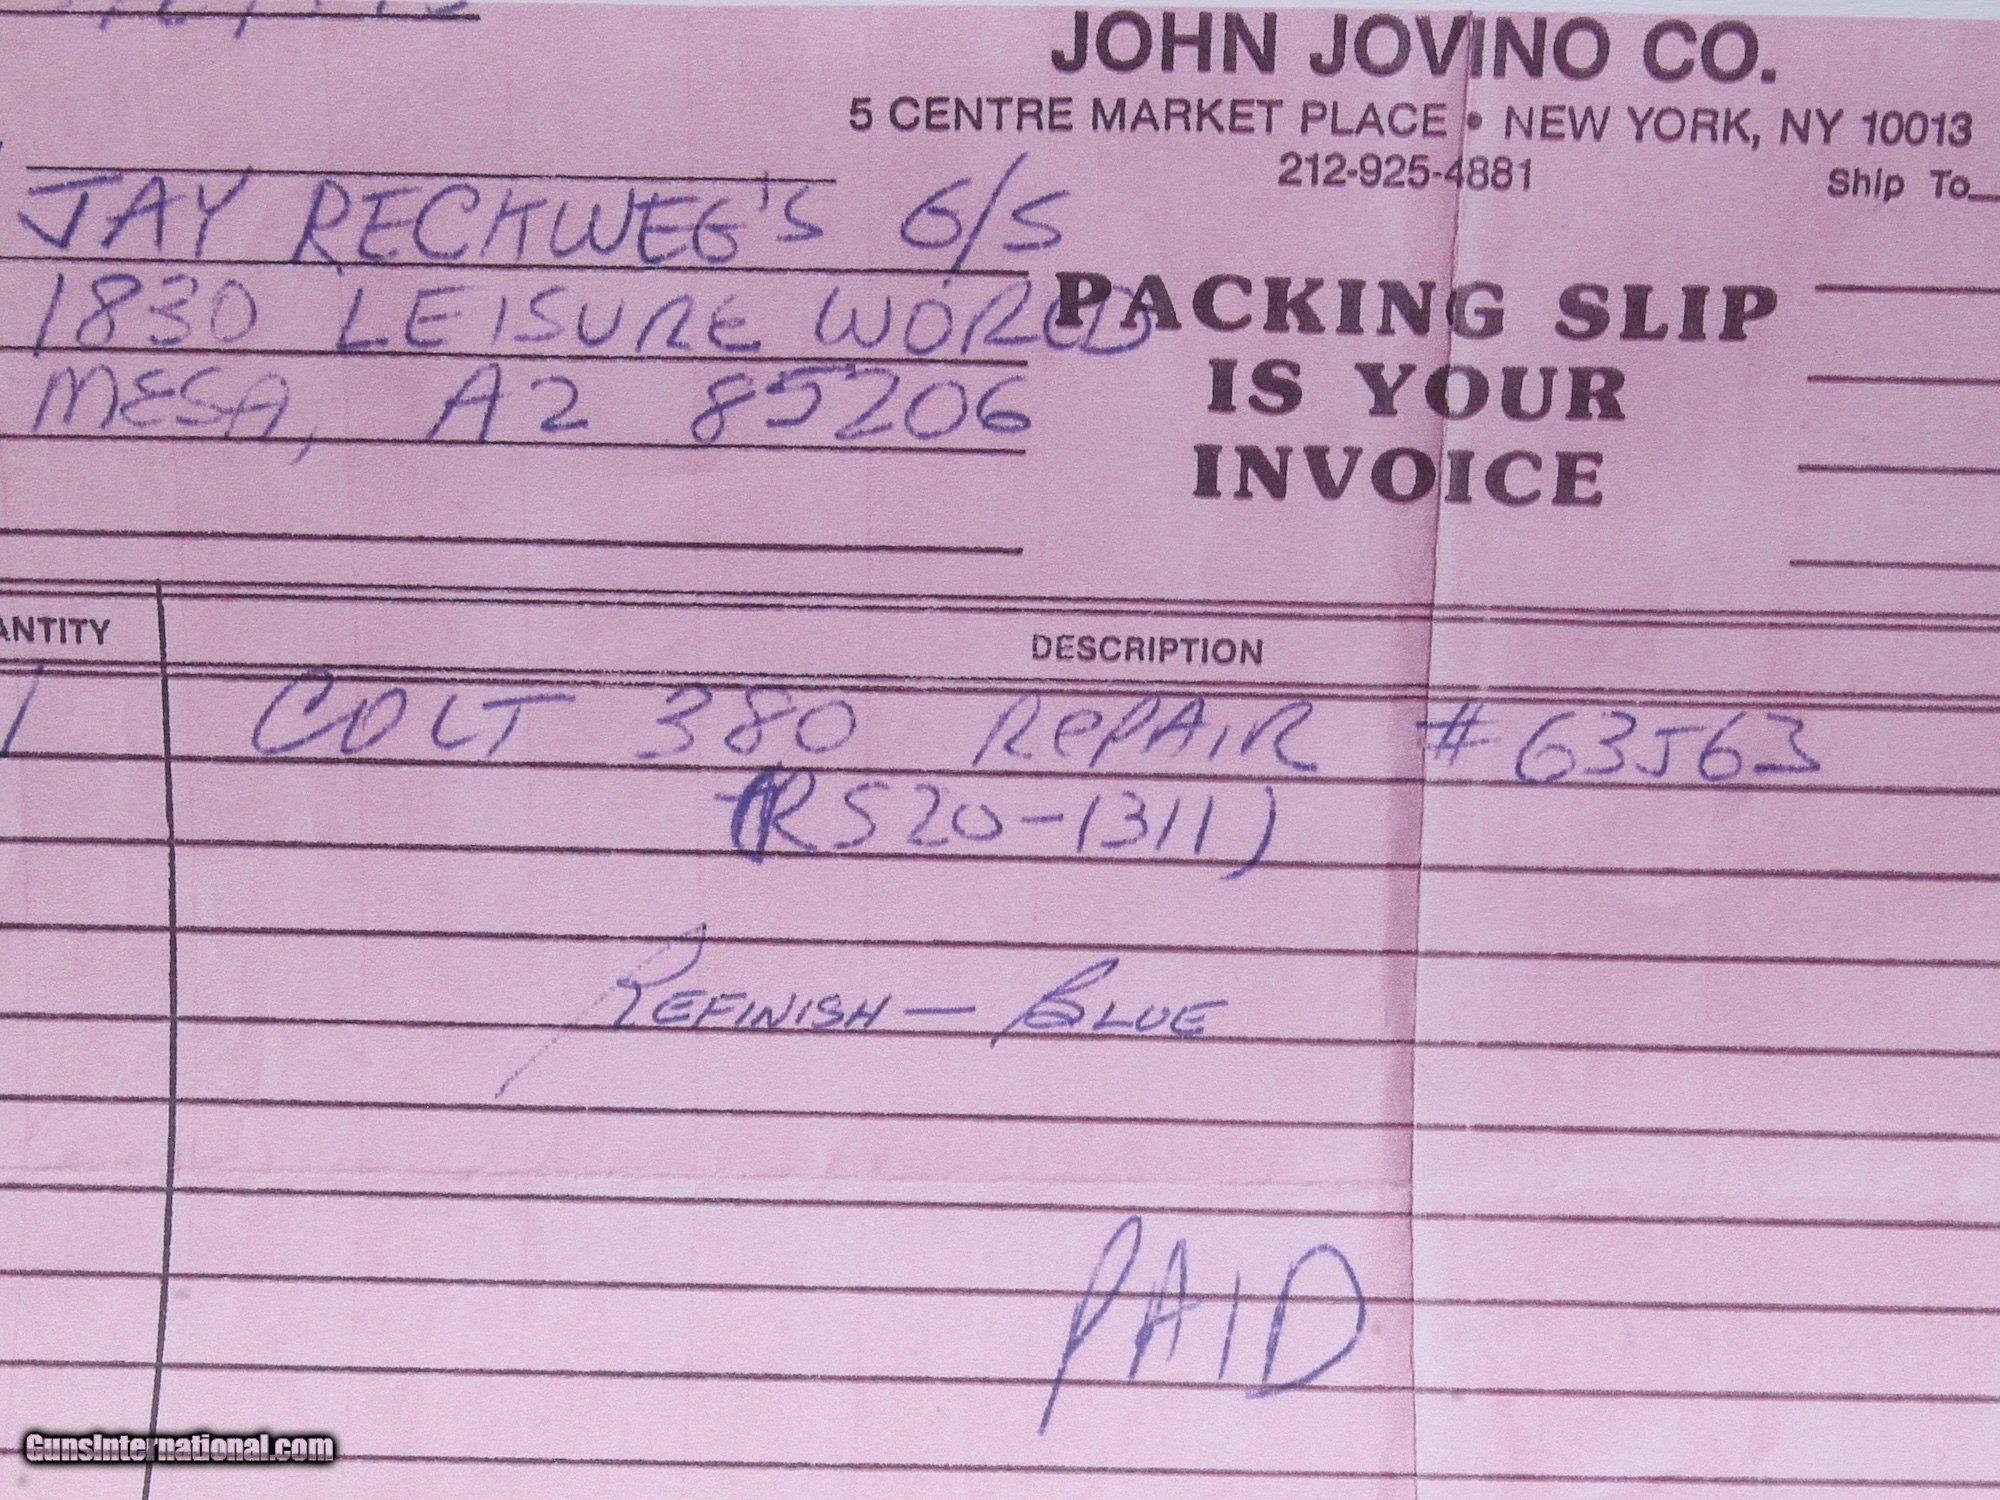 JOHN JOVINO CO.
5 CENTRE MARKET PLACE • NEW YORK, NY 10013
212-925-4881
Ship To
JAY RECKWEG'S G/S
1830 LEISURE WORLD
MESA, AZ 85206
PACKING SLIP
IS YOUR
INVOICE
ANTITY DESCRIPTION
1 COLT 380 REPAIR #63563
(RS20-1311)
REFINISH - BLUE
PAID
GunsInternational.com